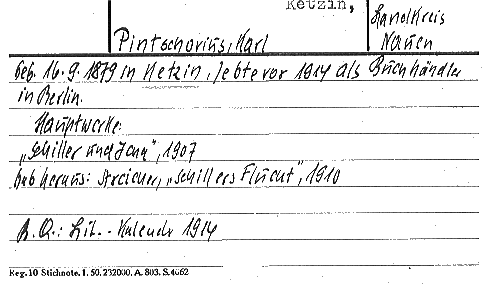 Ketzin,
Landkreis
Nauen
Pintschovius, Karl
Geb. 16. 9. 1879 in Ketzin, lebte vor 1914 als Buchhändler
in Berlin.
Hauptwerke:
„Schiller und Jena", 1907
Gab heraus: Streicher, „Schillers Flucht", 1910
B. Q.: Lit. - Kalender 1914
Reg. 10 Stichnote. I. 50. 232000. A. 803. S. 4662